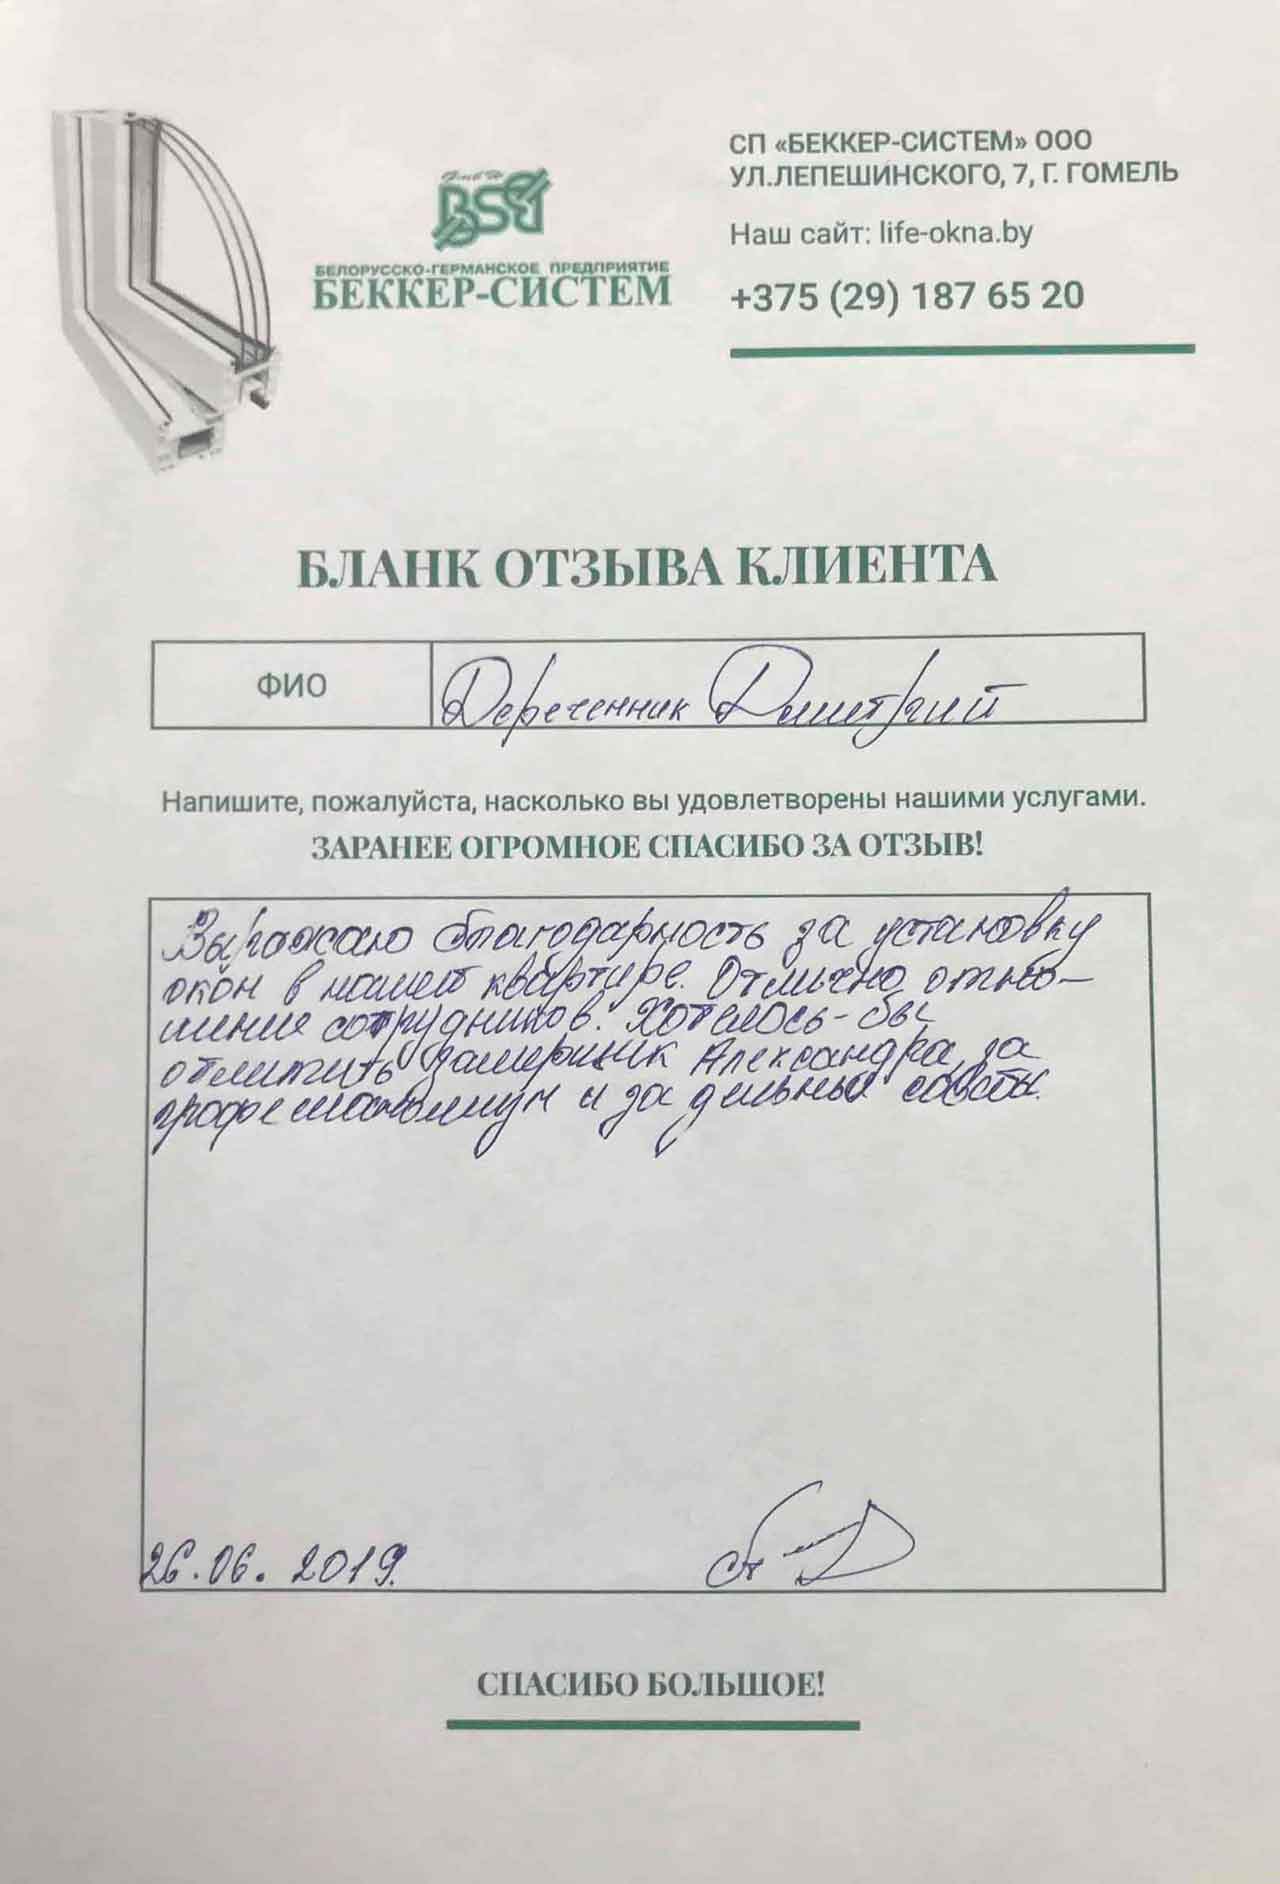 СП «БЕККЕР-СИСТЕМ» ООО
УЛ.ЛЕПЕШИНСКОГО, 7, Г. ГОМЕЛЬ
Наш сайт: life-okna.by
+375 (29) 187 65 20
GmbH
BSB
БЕЛОРУССКО-ГЕРМАНСКОЕ ПРЕДПРИЯТИЕ
БЕККЕР-СИСТЕМ
БЛАНК ОТЗЫВА КЛИЕНТА
ФИО
Дереченник Дмитрий
Напишите, пожалуйста, насколько вы удовлетворены нашими услугами.
ЗАРАНЕЕ ОГРОМНОЕ СПАСИБО ЗА ОТЗЫВ!
Выражаю благодарность за установку
окон в нашей квартире. Отлично отно-
шение сотрудников. Хотелось-бы
отметить замерщик Александра за
профессионализм и за дельные советы.
26.06.2019.
СПАСИБО БОЛЬШОЕ!